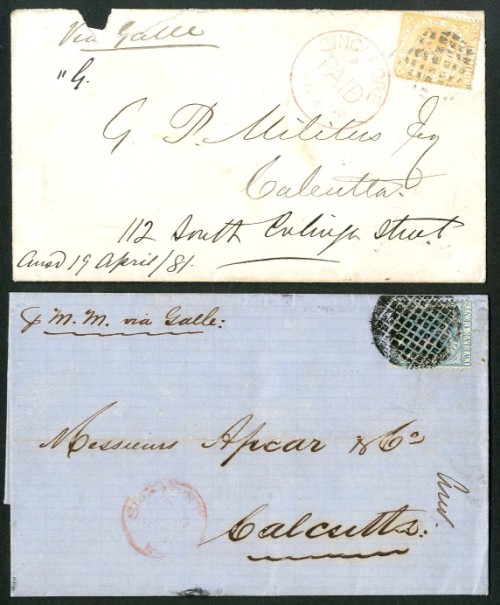 Via Galle
"G.
SINGAPORE
PAID
G. P. Esq
Calcutta.
112 South Colinga Street
Ansd 19 April/81.
p M. M. via Galle:
TWELVE CENTS
Messieurs Apcar & Co
Ans.
Calcutta: